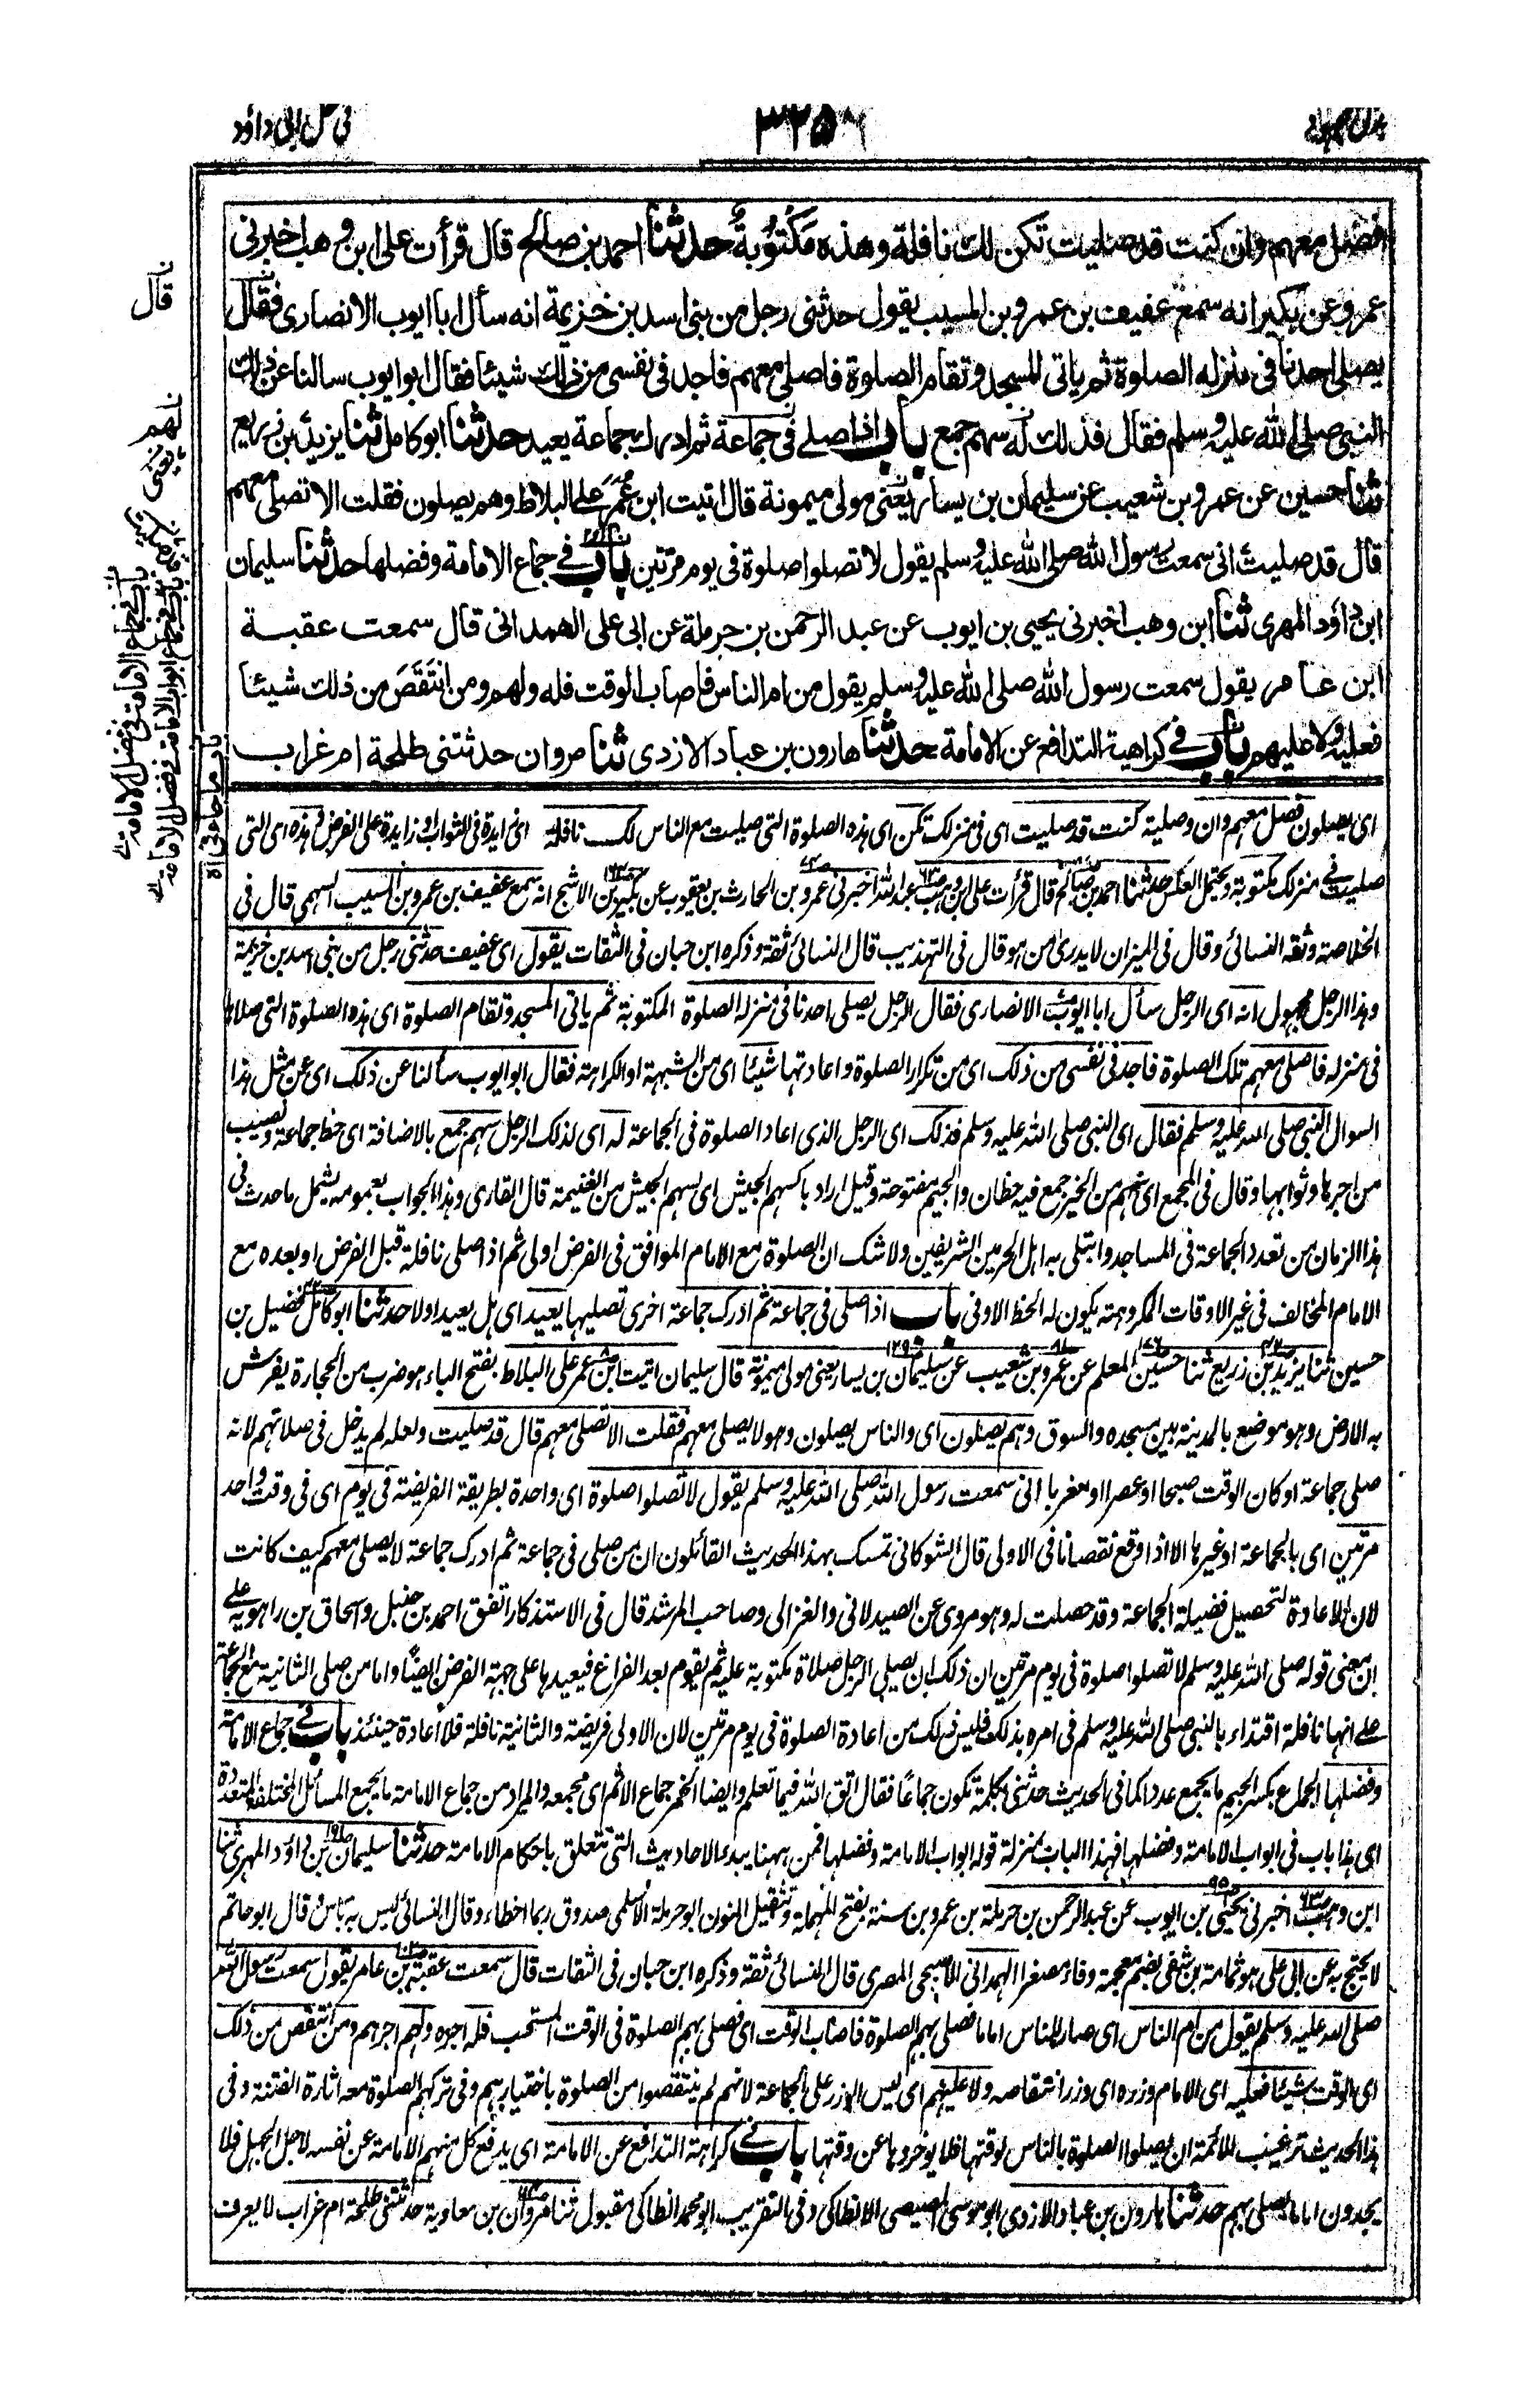 في حل ابى داؤد
٣٢٥
بذل المجهود
فصل معهم وان كنت قد صليت تكن لك نافلة وهذه مكتوبة حدثنا احمد بن صالح قال قرأت على ابن وهب اخبرنى
عمرو عن بكير انه سمع عفيف بن عمرو بن المسيب يقول حدثنى رجل من بنى اسد بن خزيمة انه سأل ابا ايوب الانصارى فقال
يصلى احدنا فى منزله الصلوة ثم ياتى المسجد وتقام الصلوة فاصلى معهم فاجد فى نفسى من ذلك شيئا فقال ابو ايوب سالنا عن ذلك
النبى صلى الله عليه وسلم فقال فذلك له سهم جمع باب اذا صلى فى جماعة ثم ادرك جماعة يعيد حدثنا ابو كامل ثنا يزيد بن زريع
ثنا حسين عن عمرو بن شعيب عن سليمان بن يسار يعنى مولى ميمونة قال اتيت ابن عمر على البلاط وهم يصلون فقلت الا تصلى معهم
قال قد صليت انى سمعت رسول الله صلى الله عليه وسلم يقول لا تصلوا صلوة فى يوم مرتين باب فى جماع الامامة وفضلها حدثنا سليمان
ابن داؤد المهرى ثنا ابن وهب اخبرنى يحيى بن ايوب عن عبد الرحمن بن حرملة عن ابى على الهمدانى قال سمعت عقبة
ابن عامر يقول سمعت رسول الله صلى الله عليه وسلم يقول من ام الناس فاصاب الوقت فله ولهم ومن انتقص من ذلك شيئا
فعليه ولا عليهم باب فى كراهية التدافع عن الامامة حدثنا هارون بن عباد الازدى ثنا مروان حدثتنى طلحة ام غراب
قال
لهم
يعنى
باب فى جماع ابواب الامامة وفضل الامامة
باب فى جماع الامامة وفضل الامامة
باب ما جاء فى
اى يصلون فصل معهم وان وصلية كنت قد صليت اى فى منزلك تكن اى هذه الصلوة التى صليت مع الناس لك نافلة اى زايدة فى الثواب او زايدة على الفرض وهذه اى التى
صليت فى منزلك مكتوبة ويحتمل العكس حدثنا احمد بن صالح قال قرأت على ابن وهب عبد الله اخبرنى عمرو بن الحارث بن يعقوب عن بكير بن الاشج انه سمع عفيف بن عمرو بن المسيب السهمى قال فى
الخلاصة وثقه النسائى وقال فى الميزان لا يدرى من هو وقال فى التهذيب قال النسائى ثقة وذكره ابن حبان فى الثقات يقول اى عفيف حدثنى رجل من بنى اسد بن خزيمة
وهذا الرجل مجهول انه اى الرجل سأل ابا ايوب الانصارى فقال الرجل يصلى احدنا فى منزله الصلوة المكتوبة ثم ياتى المسجد وتقام الصلوة اى هذه الصلوة التى صلاها
فى منزله فاصلى معهم تلك الصلوة فاجد فى نفسى من ذلك اى من تكرار الصلوة واعادتها شيئا اى من الشبهة او الكراهة فقال ابو ايوب سألنا عن ذلك اى عن مثل هذا
السوال النبى صلى الله عليه وسلم فقال اى النبى صلى الله عليه وسلم فذلك اى الرجل الذى اعاد الصلوة فى الجماعة له اى لذلك الرجل سهم جمع بالاضافة اى حظ جماعة ونصيب
من اجرها وثوابها وقال فى المجمع اى سهم من الخير جمع فيه حظان والجيم مفتوحة وقيل اراد بالسهم الجيش اى سهم الجيش من الغنيمة قال القارى وهذا الجواب بعمومه يشمل ما حدث فى
هذا الزمان من تعدد الجماعة فى المساجد وابتلى به اهل الحرمين الشريفين ولا شك ان الصلوة مع الامام الموافق فى الفرض اولى ثم اذا صلى نافلة قبل الفرض او بعده مع
الامام المخالف فى غير الاوقات المكروهة يكون له الحظ الاوفى باب اذا صلى فى جماعة ثم ادرك جماعة اخرى تصليها يعيد اى هل يعيد اولا حدثنا ابو كامل فضيل بن
حسين ثنا يزيد بن زريع ثنا حسين المعلم عن عمرو بن شعيب عن سليمان بن يسار يعنى مولى ميمونة قال سليمان اتيت ابن عمر على البلاط بفتح الباء هو ضرب من الحجارة يفرش
به الارض وهو موضع بالمدينة بين مسجده والسوق وهم يصلون اى والناس يصلون وهو لا يصلى معهم فقلت الا تصلى معهم قال قد صليت ولعله لم يدخل فى صلاتهم لانه
صلى جماعة او كان الوقت صبحا او عصرا او مغربا انى سمعت رسول الله صلى الله عليه وسلم يقول لا تصلوا صلوة اى واحدة بطريقة الفريضة فى يوم اى فى وقت واحد
مرتين اى بالجماعة او غيرها الا اذا وقع نقصانا فى الاولى قال الشوكانى تمسك بهذا الحديث القائلون ان من صلى فى جماعة ثم ادرك جماعة لا يصلى معهم كيف كانت
لان الاعادة لتحصيل فضيلة الجماعة وقد حصلت له وهو مروى عن الصيدلانى والغزالى وصاحب المرشد قال فى الاستذكار اتفق احمد بن حنبل واسحاق بن راهويه على
ان معنى قوله صلى الله عليه وسلم لا تصلوا صلوة فى يوم مرتين ان ذلك ان يصلى الرجل صلاة مكتوبة عليه ثم يقوم بعد الفراغ فيعيدها على جهة الفرض ايضا واما من صلى الثانية مع الجماعة
على انها نافلة اقتداء بالنبى صلى الله عليه وسلم فى امره بذلك فليس ذلك من اعادة الصلوة فى يوم مرتين لان الاولى فريضة والثانية نافلة فلا اعادة حينئذ باب فى جماع الامامة
وفضلها الجماع بكسر الجيم ما يجمع عددا كما فى الحديث حدثنى بكلمة تكون جماعا فقال اتق الله فيما تعلم وايضا الخمر جماع الاثم اى مجمعه والمراد من جماع الامامة ما يجمع المسائل المختلفة المتعددة
اى هذا باب فى ابواب الامامة وفضلها فهذا الباب بمنزلة قوله ابواب الامامة وفضلها فمن ههنا يبدء الاحاديث التى تتعلق باحكام الامامة حدثنا سليمان بن داؤد المهرى ثنا
ابن وهب اخبرنى يحيى بن ايوب عن عبد الرحمن بن حرملة بن عمرو بن سنة بفتح المهملة وتثقيل النون ابو حرملة الاسلمى صدوق ربما اخطاء وقال النسائى ليس به بأس وقال ابو حاتم
لا يحتج به عن ابى على هو ثمامة بن شفى بضم معجمة وفاء مصغرا الهمدانى الاصبحى المصرى قال النسائى ثقة وذكره ابن حبان فى الثقات قال سمعت عقبة بن عامر يقول سمعت رسول الله
صلى الله عليه وسلم يقول من ام الناس اى صار للناس اماما فصلى بهم الصلوة فاصاب الوقت اى فصلى بهم الصلوة فى الوقت المستحب فله اجره ولهم اجرهم ومن انتقص من ذلك
اى الوقت شيئا فعليه اى الامام وزره اى وزر انتقاصه ولا عليهم اى ليس الوزر على الجماعة لانهم لم ينتقصوا من الصلوة باختيارهم وفى تركهم الصلوة معه اثارة الفتنة وفى
هذا الحديث ترغيب للائمة ان يصلوا الصلوة بالناس لوقتها فلا يوخروها عن وقتها باب فى كراهة التدافع عن الامامة اى يدفع كل منهم الامامة عن نفسه لاجل الجهل فلا
يجدون اماما يصلى بهم حدثنا هارون بن عباد الازدى ابو موسى المصيصى الانطاكى وفى التقريب ابو محمد انطاكى مقبول ثنا مروان بن معاوية حدثتنى طلحة ام غراب لا يعرف